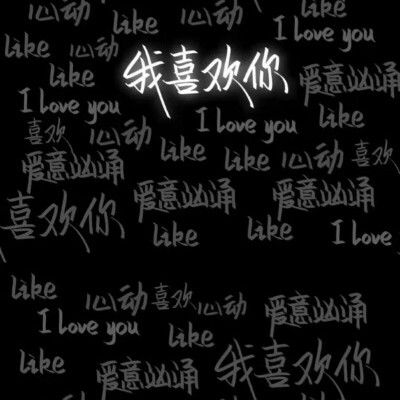 like 心动 like 爱意汹涌
like like I love you
like 我喜欢你
like 爱意汹涌
I love you like
喜欢 心动 I love you like
爱意汹涌 like like 心动 喜欢
爱意汹涌 爱意汹涌
喜欢你 like like I love
like 心动 喜欢 心动 爱意汹涌
I love you like
like 爱意汹涌 我喜欢你
like 爱意汹涌